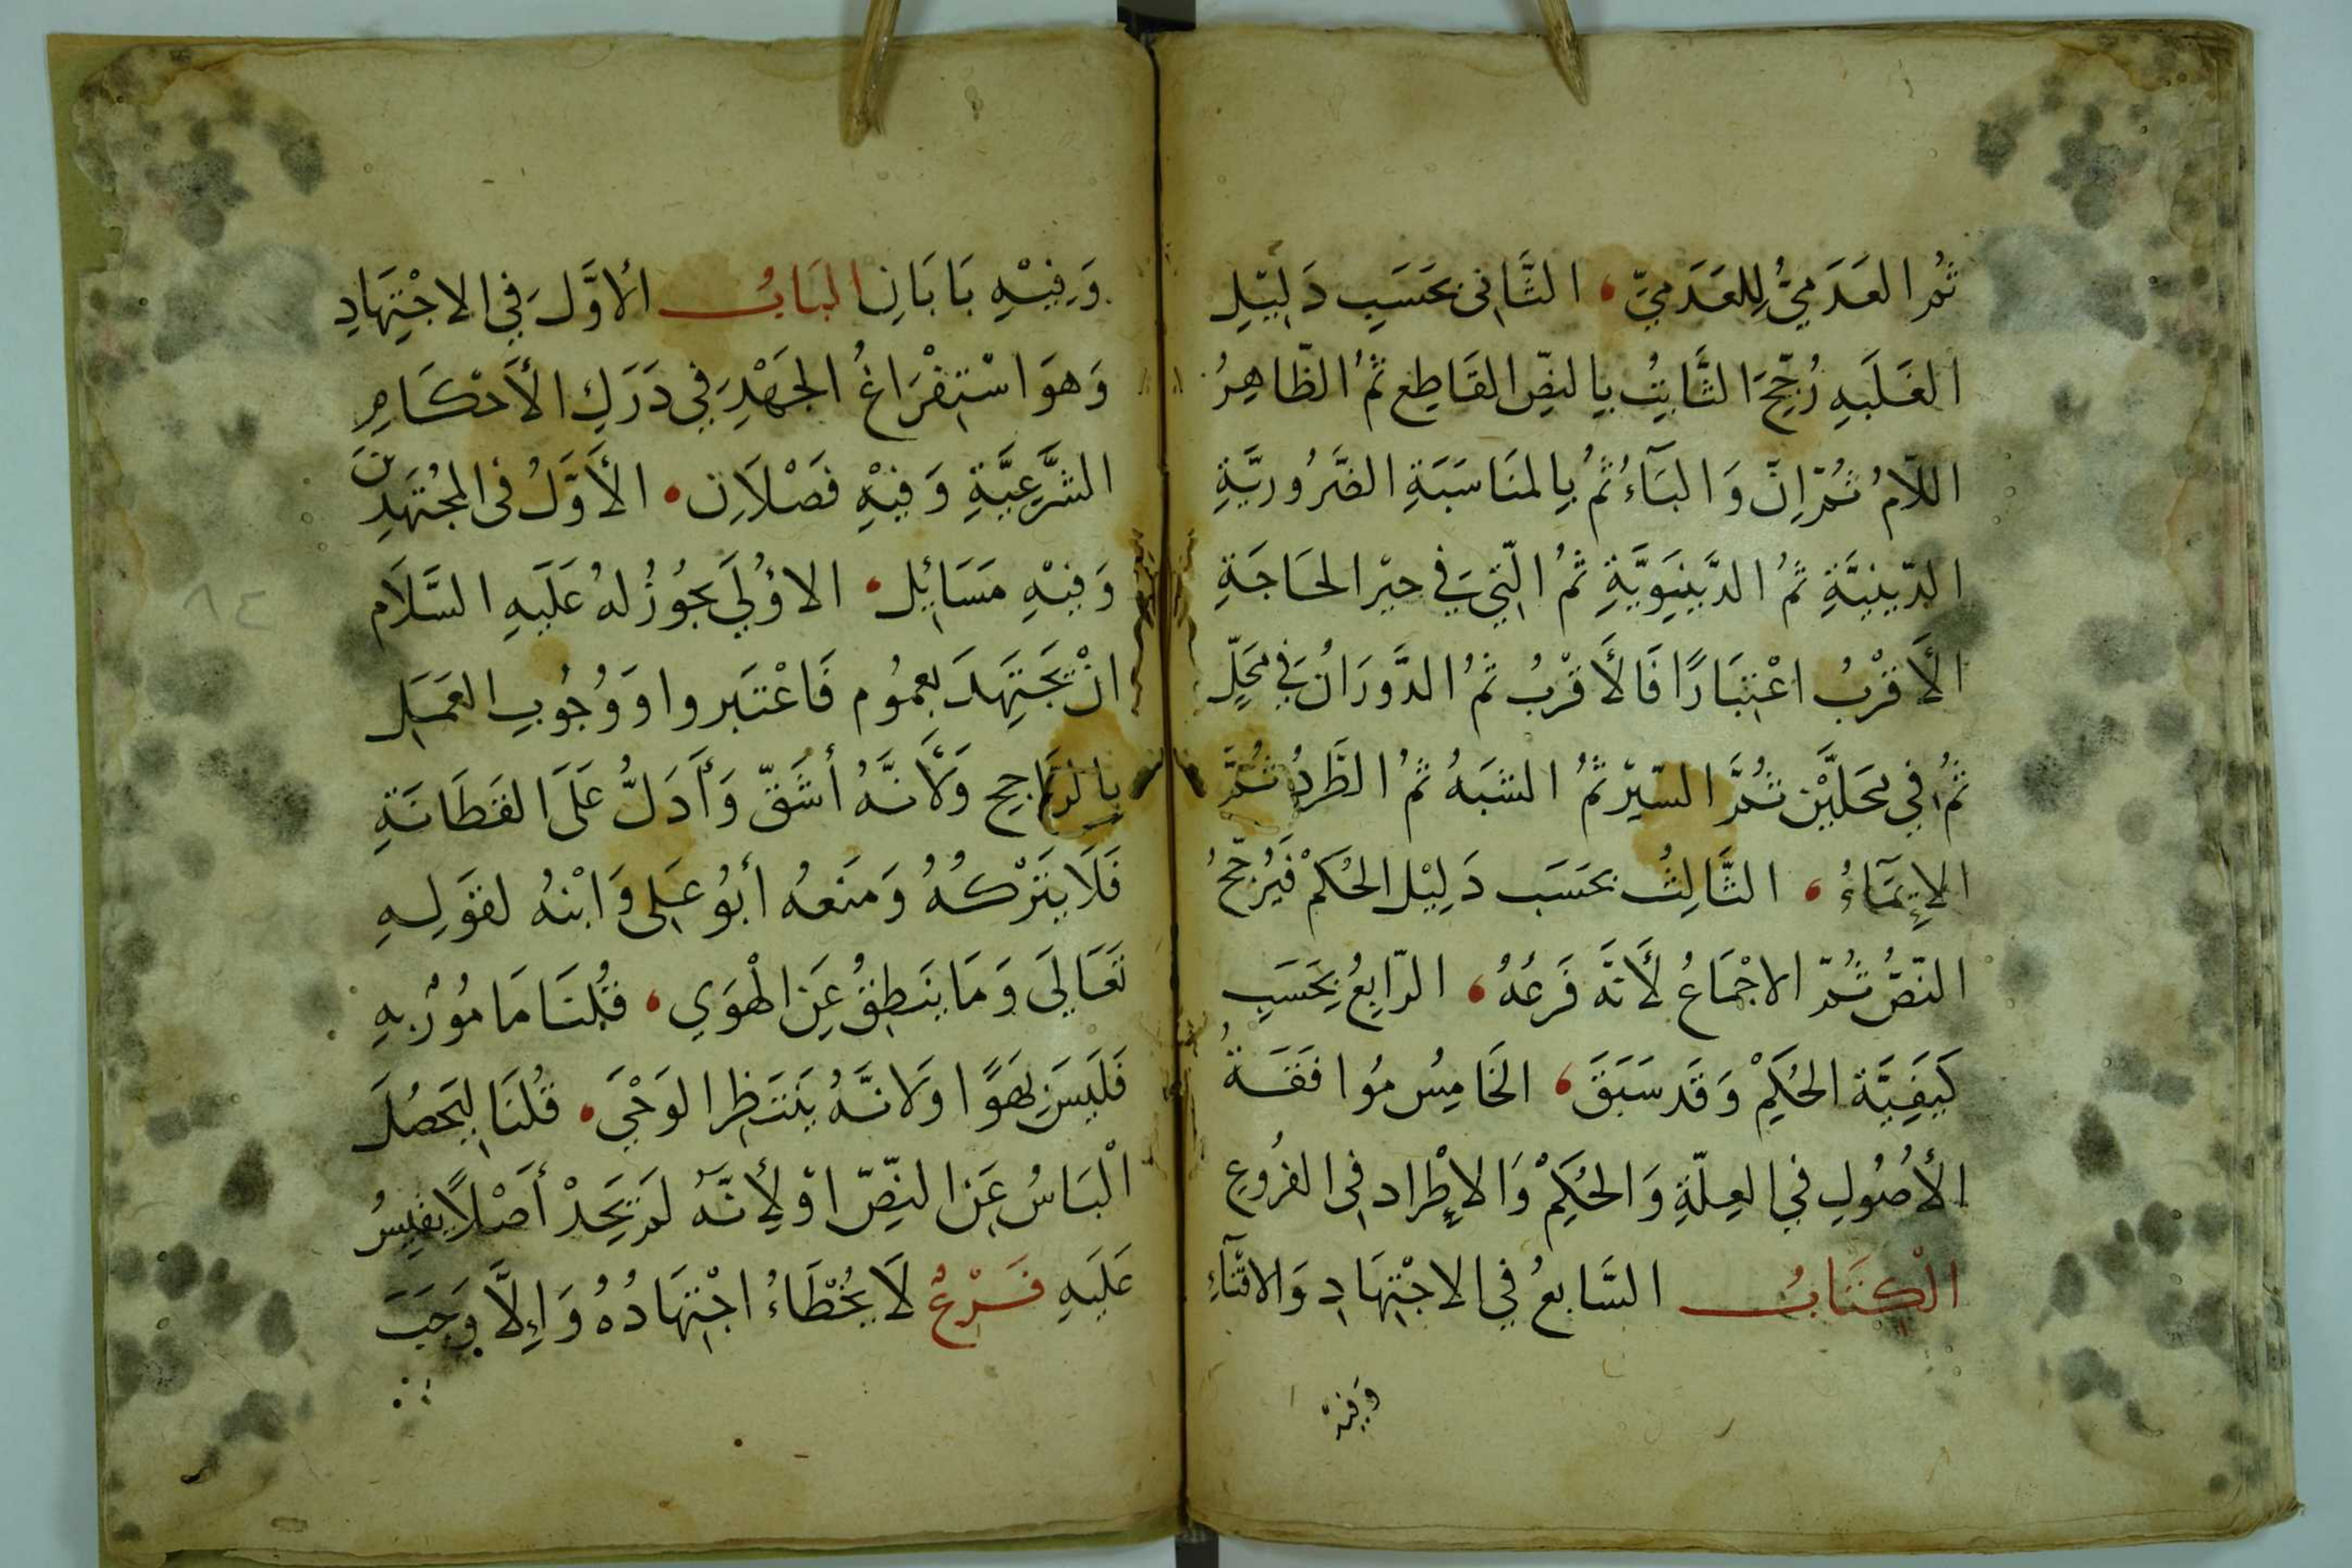 ثُمَّ العَدَمِيُّ لِلعَدَمِيِّ، الثَّانِي بحَسَبِ دَلِيْلِ
الغَلَبَهِ رُجِّحَ الثَّابِتُ بِالنصِّ القَاطِعِ ثُمُ الظَّاهِرُ
اللّامُ ثُمّ اِنّ وَالبَآءُ ثُمُ بِالمنَاسَبَةِ الضَّرُورِيَّةِ
الدّينِيَّةِ ثُمُ الدَّيْنِيَوِيَّةِ ثُمُ الّتِي فِي حيْز الحَاجَةِ
الأَقرْبُ اعْتِبَارًا فَالأَقرْبُ ثُمُ الدَّورَانُ فِي مَحَلٍّ
ثُمُ فِي مَحَلَّيْنِ ثُمَّ السّيْرُ ثُمُ الشبَهُ ثُمُ الطَّردُ ثُمَّ
الإِيمَآءُ، الثَّالِثُ بحَسَب دَلِيْل الحُكمْ فَيُرَجّحُ
النّصُّ ثُمّ الاجْمَاعُ لأَنَّه فَرعُهُ، الرّابِعُ بِحَسَبِ
كَيفِيَّة الحُكمِْ وَقَد سَبَقَ، الخَامِسُ مُوافَقَةُ
الأُصُولِ فِي العِلّةِ وَالحُكِمْ وَالاِطْراد فِي الفُروُعِ
الْكِتَابُ السَّابعُ فِي الاجْتِهَادِ وَالافْتَآءِ
وَفِيْهِ
وَفِيْهِ بَابَانِ البَابُ الأوَّلَ فِي الاجْتِهَادِ
وَهوَ اسْتِفْرَاغُ الجَهْدِ فِي دَرَكِ الأَحْكَامِ
الشَّرعِيَّةِ وَفِيْهِ فَصْلَانِ. الأَوَّلُ فى المجُتَهَدِيْنَ
وَفِيْهِ مَسَائِل، الاوُلَي يجُوزُ لهُ عَلَيهِ السَّلَام
انْ يَجْتَهِدَ بعمُوم فَاعْتَبروا وَوُجُوبِ العَمَلِ
بِالرَّاجِحِ وَلأَنَّهُ أشَقّ وَأَدَلُّ عَلَى الفَطَانَةِ
فَلَا يَتْرْكُهُ وَمنَعهُ أبُو عَلِى وَابْنهُ لقوَلِهِ
تَعَالَى وَمَا يَنطِقُ عَنِ الْهوَي، قُلنَا مَامُوْرٌ بهِ
فَلَيسَ بِهَوًا وَلانَّهُ يَنتَظِر الوَحْيَ. قُلنَا لِيَحصُلَ
الْيَاسُ عَنِ النصِّ اوْ لِأنَّهُ لَمْ يَجَدْ أَصْلاً يقيِسُ
عَلَيهِ فَرْعٌ لَا يُخْطَاءُ اجْتِهَادُهُ وَاِلاَّ وَجَبَ
٨٤